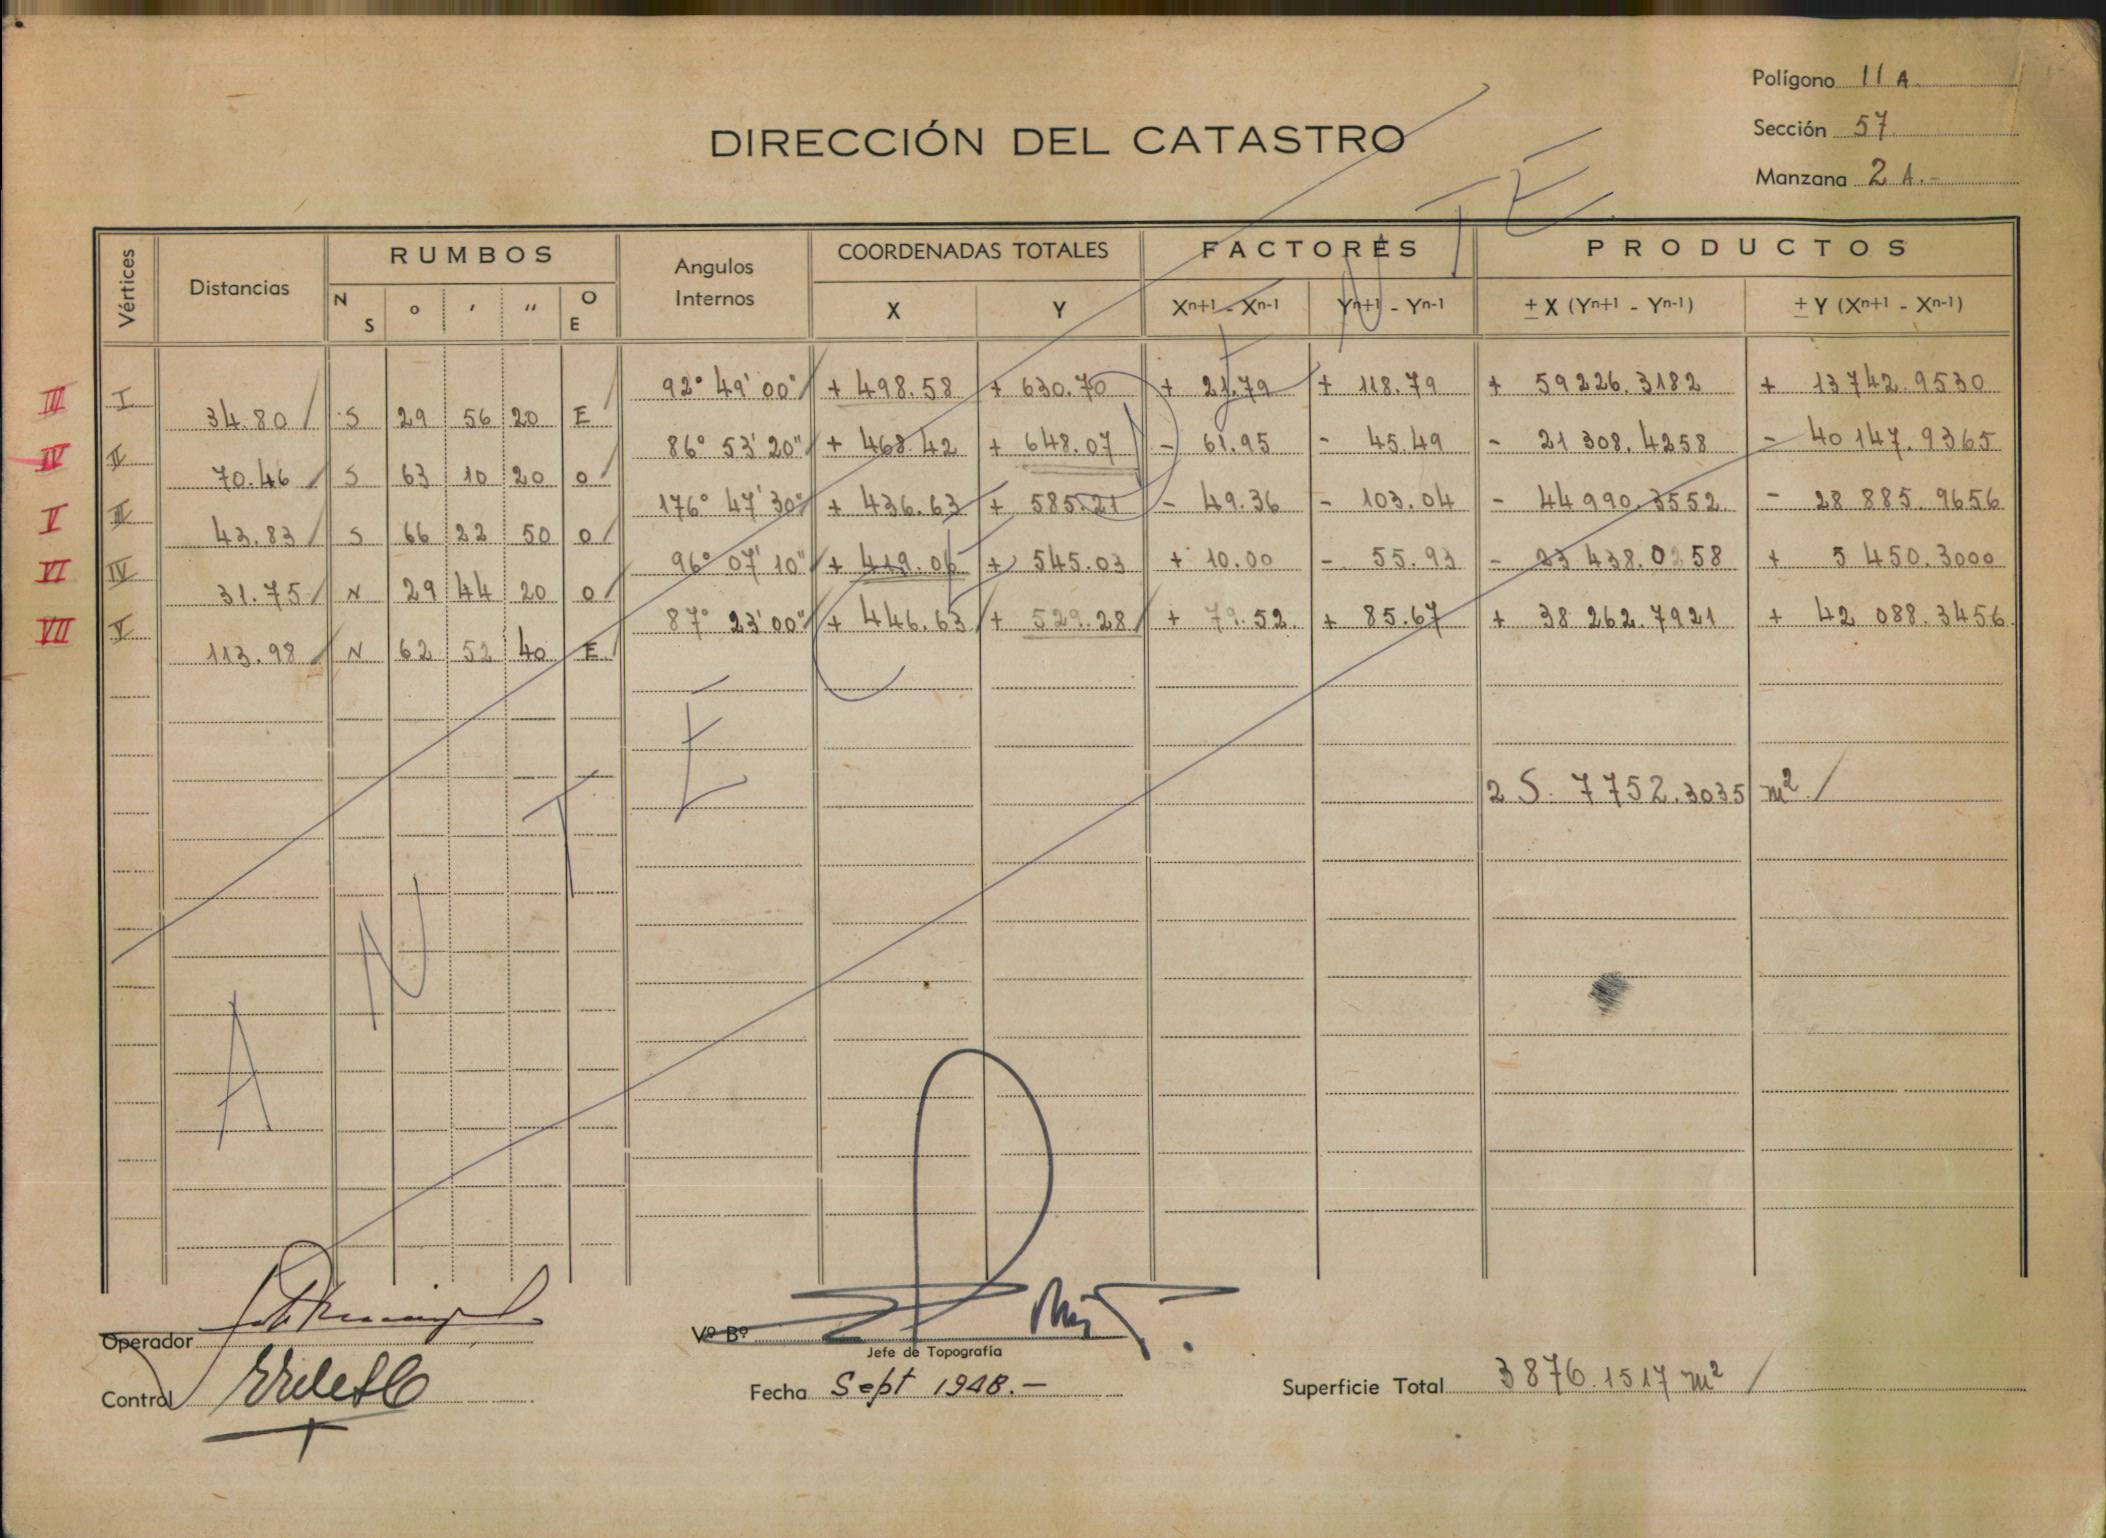 Polígono 11 A.
DIRECCIÓN DEL CATASTRO
Sección 57
Manzana 2 A.-
Vértices Distancias RUMBOS Angulos Internos COORDENADAS TOTALES FACTORES PRODUCTOS
N S ° ′ ″ O E X Y Xn+1 - Xn-1 Yn+1 - Yn-1 ± X (Yn+1 - Yn-1) ± Y (Xn+1 - Xn-1)
III I 92° 49' 00" + 498.58 + 630.70 + 21.79 + 118.79 + 59226.3182 + 13742.9530
34.80 S 29 56 20 E
IV II 86° 53' 20" + 468.42 + 648.07 - 61.95 - 45.49 - 21 308.4258 - 40 147.9365
70.46 S 63 10 20 O
V III 176° 47' 30" + 436.63 + 585.21 - 49.36 - 103.04 - 44 990.3552 - 28 885.9656
43.83 S 66 22 50 O
VI IV 96° 07' 10" + 419.06 + 545.03 + 10.00 - 55.93 - 23 438.0258 + 5 450.3000
31.75 N 29 44 20 O
VII V 87° 23' 00" + 446.63 + 529.28 + 79.52 + 85.67 + 38 262.7921 + 42 088.3456
113.98 N 62 52 40 E
2 S. 7752.3035 m²
ANTECEDENTE
Operador
Vº Bº
Jefe de Topografía
Control
Fecha Sept 1948.-
Superficie Total 3876.1517 m²